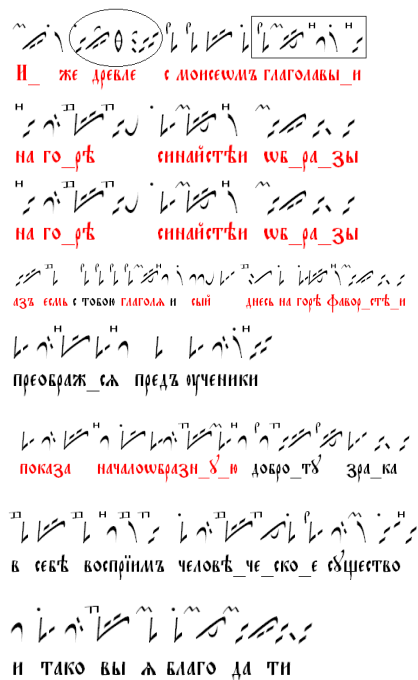 И_ же древле с моисеѡмъ глаголавы_и
на го_рѣ синайстѣи ѡб_ра_зы
на го_рѣ синайстѣи ѡб_ра_зы
азъ есмь с тобою глаголя и сый днесь на горѣ фавор_стѣ_и
преображ_ся предъ ѹченики
показа началоѡбразн_ꙋ_ю добро_тꙋ зра_ка
в себѣ воспрїимъ человѣ_че_ско_е сꙋщество
и тако вы я благо да ти